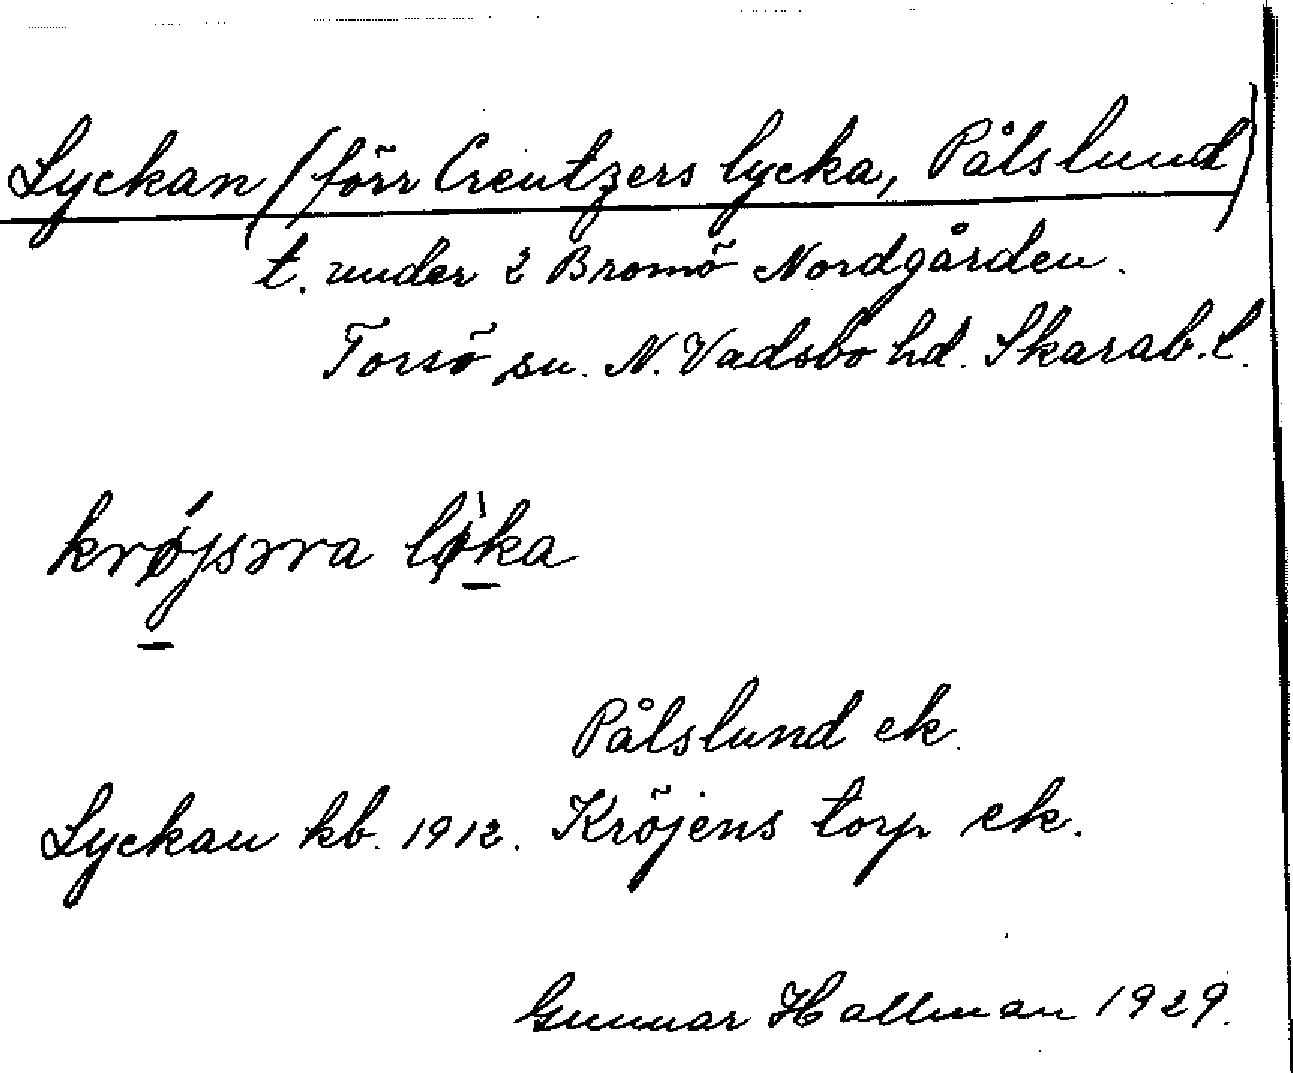 Lyckan (förr Creutzers lycka, Pålslund)
t. under 2 Bromö Nordgården.
Torsö sn. N. Vadsbo hd. Skarab. l.
krøjsərra løka
Pålslund ek.
Lyckan kb. 1912. Kröjens torp ek.
Gunnar Hallman 1929.